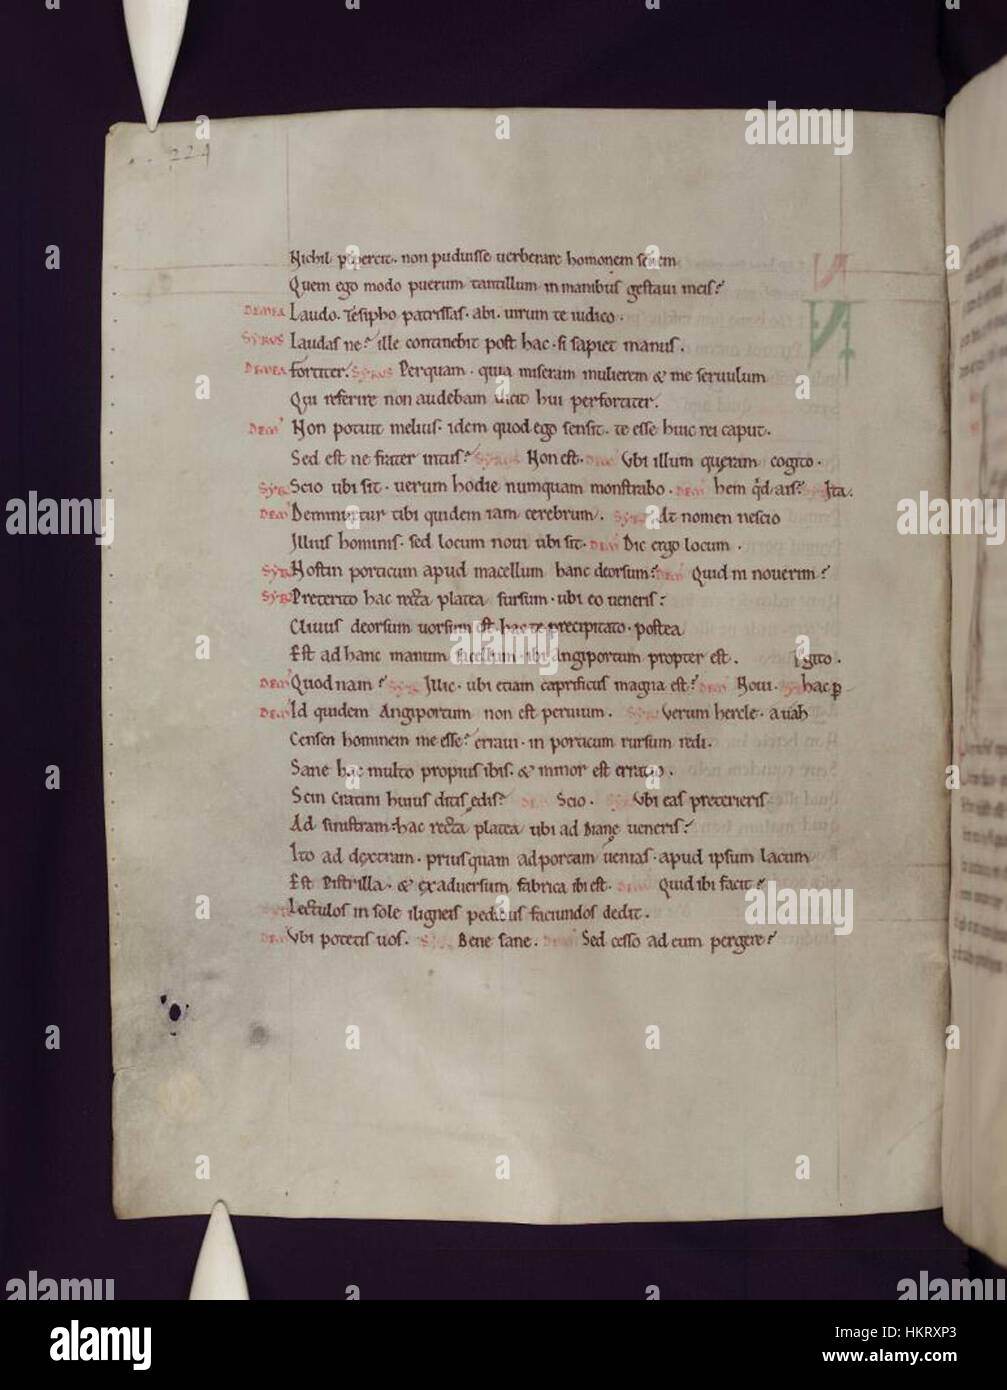 224
Nichil pepercit. non puduisse uerberare homonem senem
Quem ego modo puerum tantillum in manibus gestaui meis?
DEMEA Laudo. Tesipho patrissas. abi. uirum te iudico.
SYRUS Laudas ne? ille continebit post hac. si sapiet manus.
DEMEA fortiter. SYRUS Perquam. quia miseram mulierem & me seruulum
Qui referire non audebam uicit hui perfortiter.
DEM' Non potuit melius. idem quod ego sensit. te esse huic rei caput.
Sed est ne frater intus? SYRUS Non est. DEM' Vbi illum queram cogito.
SYR' Scio ubi sit. uerum hodie numquam monstrabo. DEM' hem qd ais? SYR' Ita.
DEM' Deminuetur tibi quidem iam cerebrum. SYR' At nomen nescio
Illius hominis. sed locum noui ubi sit. DEM' Dic ergo locum.
SYR' Nostin porticum apud macellum hanc deorsum? DEM' Quid ni nouerim?
SYR' Preterito hac recta platea sursum. ubi eo ueneris?
Cliuus deorsum uorsum est. hac te precipitato. postea
Est ad hanc manum sacellum. ibi Angiportum propter est.
DEM' Quod nam? SYR' Illic. ubi etiam caprificus magna est? DEM' Noui. SYR' hac p
gito.
DEM' Id quidem Angiportum non est peruium. SYR' Verum hercle. auah
Censen hominem me esse? erraui. in porticum rursum redi.
Sane hac multo propius ibis. & minor est erratio.
Scin Cratini huius ditis edis? DEM' Scio. SYR' Vbi eas preterieris
Ad sinistram. hac recta platea ubi ad Diane ueneris?
Ito ad dextram. priusquam ad portam uenias. apud ipsum lacum
Est Pistrilla. & exaduersum fabrica ibi est. DEM' Quid ibi facit?
Lectulos in sole iligneis pedibus faciundos dedit.
DEM' Vbi potetis uos. SYR' Bene sane. DEM' Sed cesso ad eum pergere?
alamy
Image ID: HKRXP3
www.alamy.com